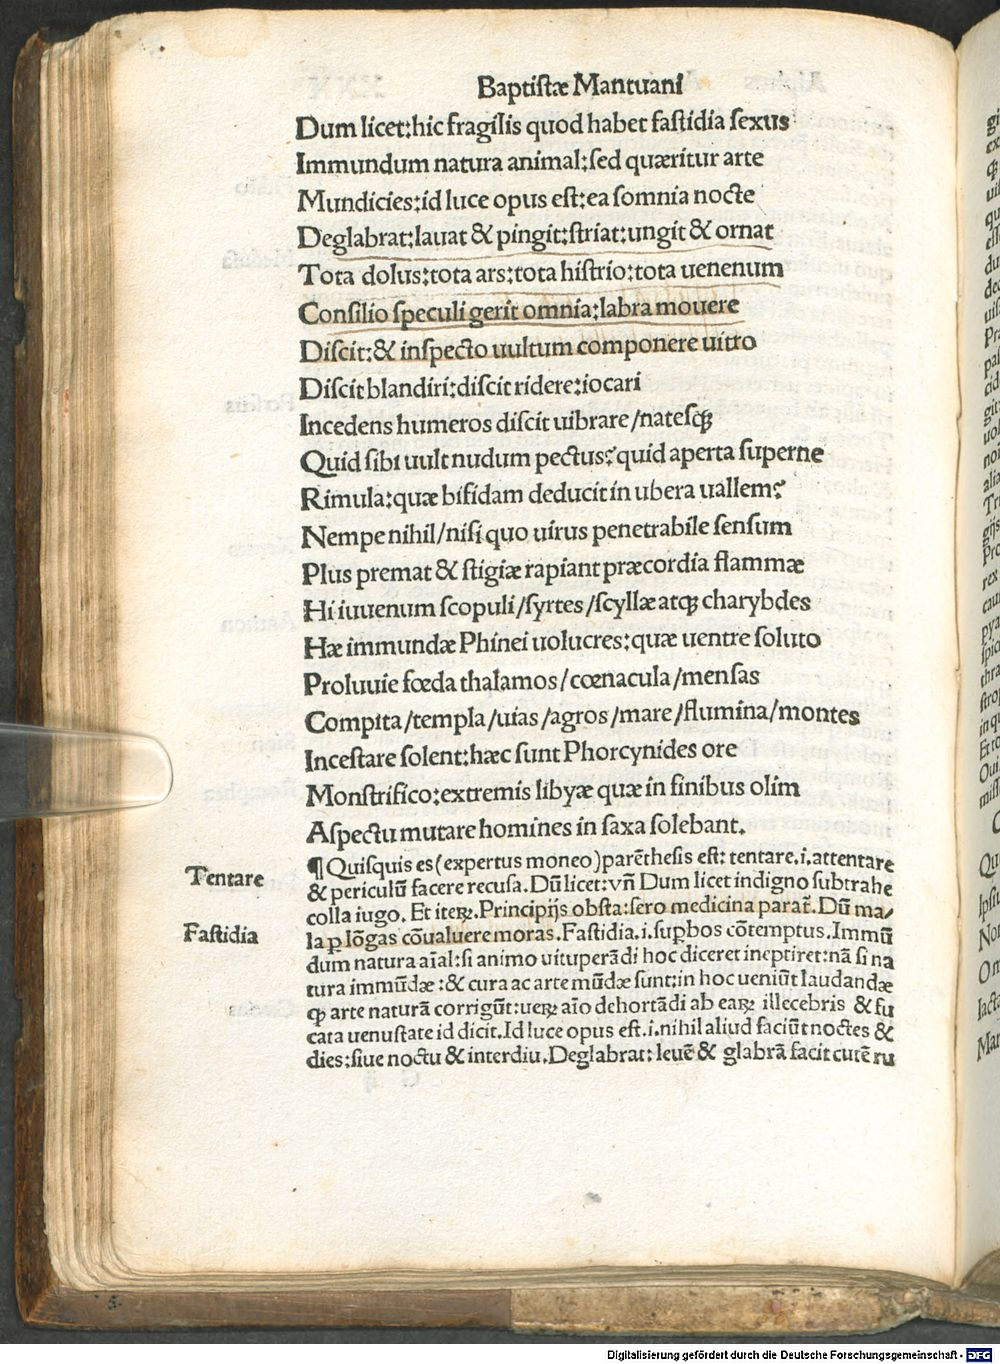 Baptistæ Mantuani
Dum licet:hic fragilis quod habet fastidia sexus
Immundum natura animal:sed quæritur arte
Mundicies:id luce opus est:ea somnia nocte
Deglabrat:lauat & pingit:striat:ungit & ornat
Tota dolus:tota ars:tota histrio:tota uenenum
Consilio speculi gerit omnia:labra mouere
Discit:& inspecto uultum componere uitro
Discit blandiri:discit ridere:iocari
Incedens humeros discit uibrare/natesqȝ
Quid sibi uult nudum pectus?quid aperta superne
Rimula:quæ bifidam deducit in ubera uallem?
Nempe nihil/nisi quo uirus penetrabile sensum
Plus premat & stigiæ rapiant præcordia flammæ
Hi iuuenum scopuli/syrtes/scyllæ atqȝ charybdes
Hæ immundæ Phinei uolucres:quæ uentre soluto
Proluuie fœda thalamos/cœnacula/mensas
Compita/templa/uias/agros/mare/flumina/montes
Incestare solent:hæc sunt Phorcynides ore
Monstrifico:extremis libyæ quæ in finibus olim
Aspectu mutare homines in saxa solebant.
Tentare
¶ Quisquis es(expertus moneo)parēthesis est: tentare.i.attentare
& periculū facere recusa.Dū licet:vñ Dum licet indigno subtrahe
colla iugo. Et iteꝝ.Principijs obsta:sero medicina parat̄.Dū ma/
Fastidia
la ꝑ lōgas cōualuere moras.Fastidia.i.suꝑbos cōtemptus.Immū
dum natura aīal:si animo uituperādi hoc diceret ineptiret:nā si na
tura immūdæ:& cura ac arte mūdæ sunt:in hoc ueniūt laudandæ
ꝙ arte naturā corrigūt:ueꝝ aīo dehortādi ab eaꝝ illecebris & fu
cata uenustate id dicit.Id luce opus est.i.nihil aliud faciūt noctes &
dies:siue noctu & interdiu.Deglabrat: leuē & glabrā facit cutē ru
Digitalisierung gefördert durch die Deutsche Forschungsgemeinschaft - DFG